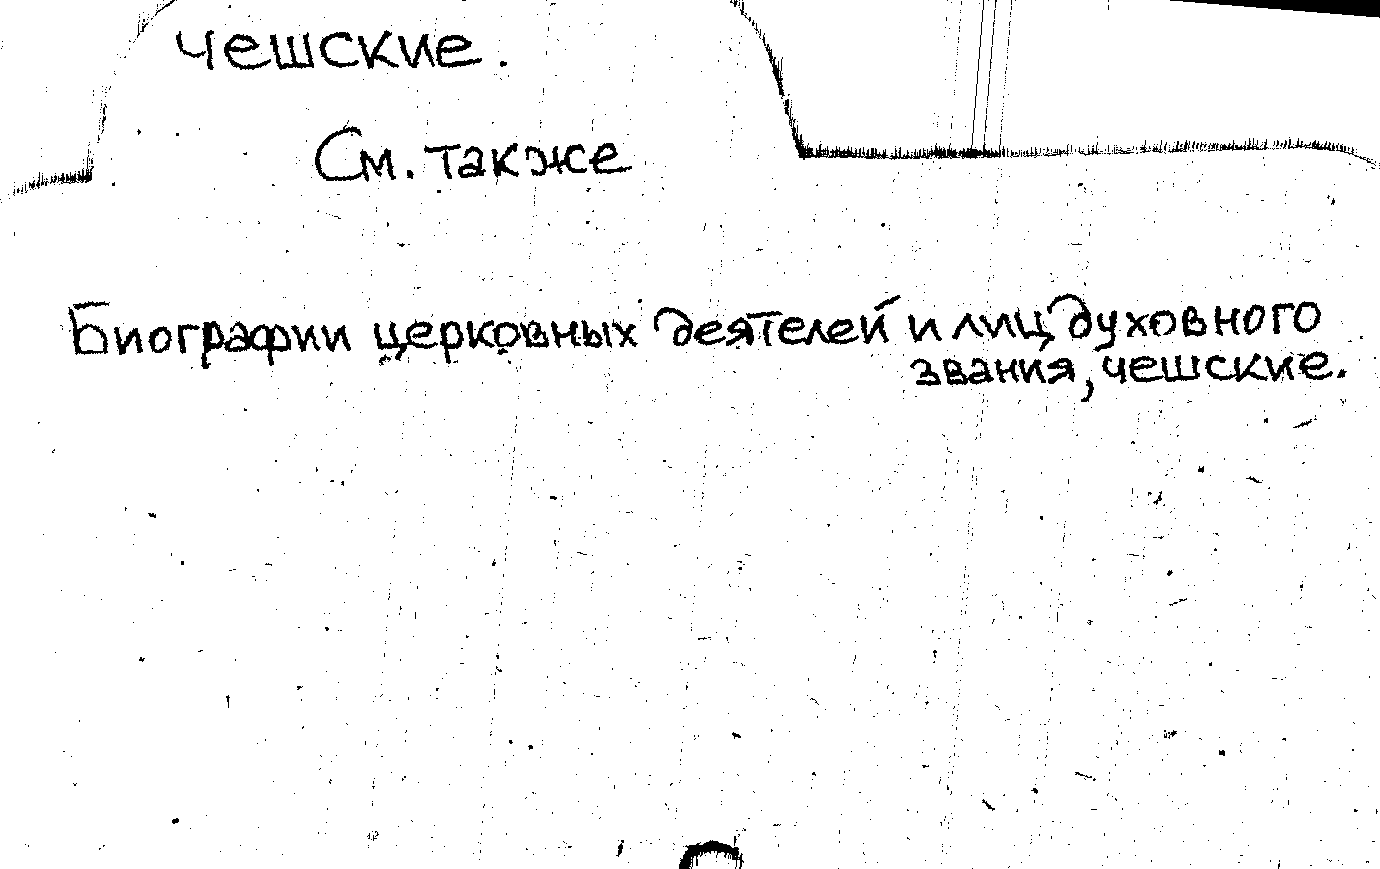 чешские.
См. также
Биографии церковных деятелей и лиц духовного
звания, чешские.